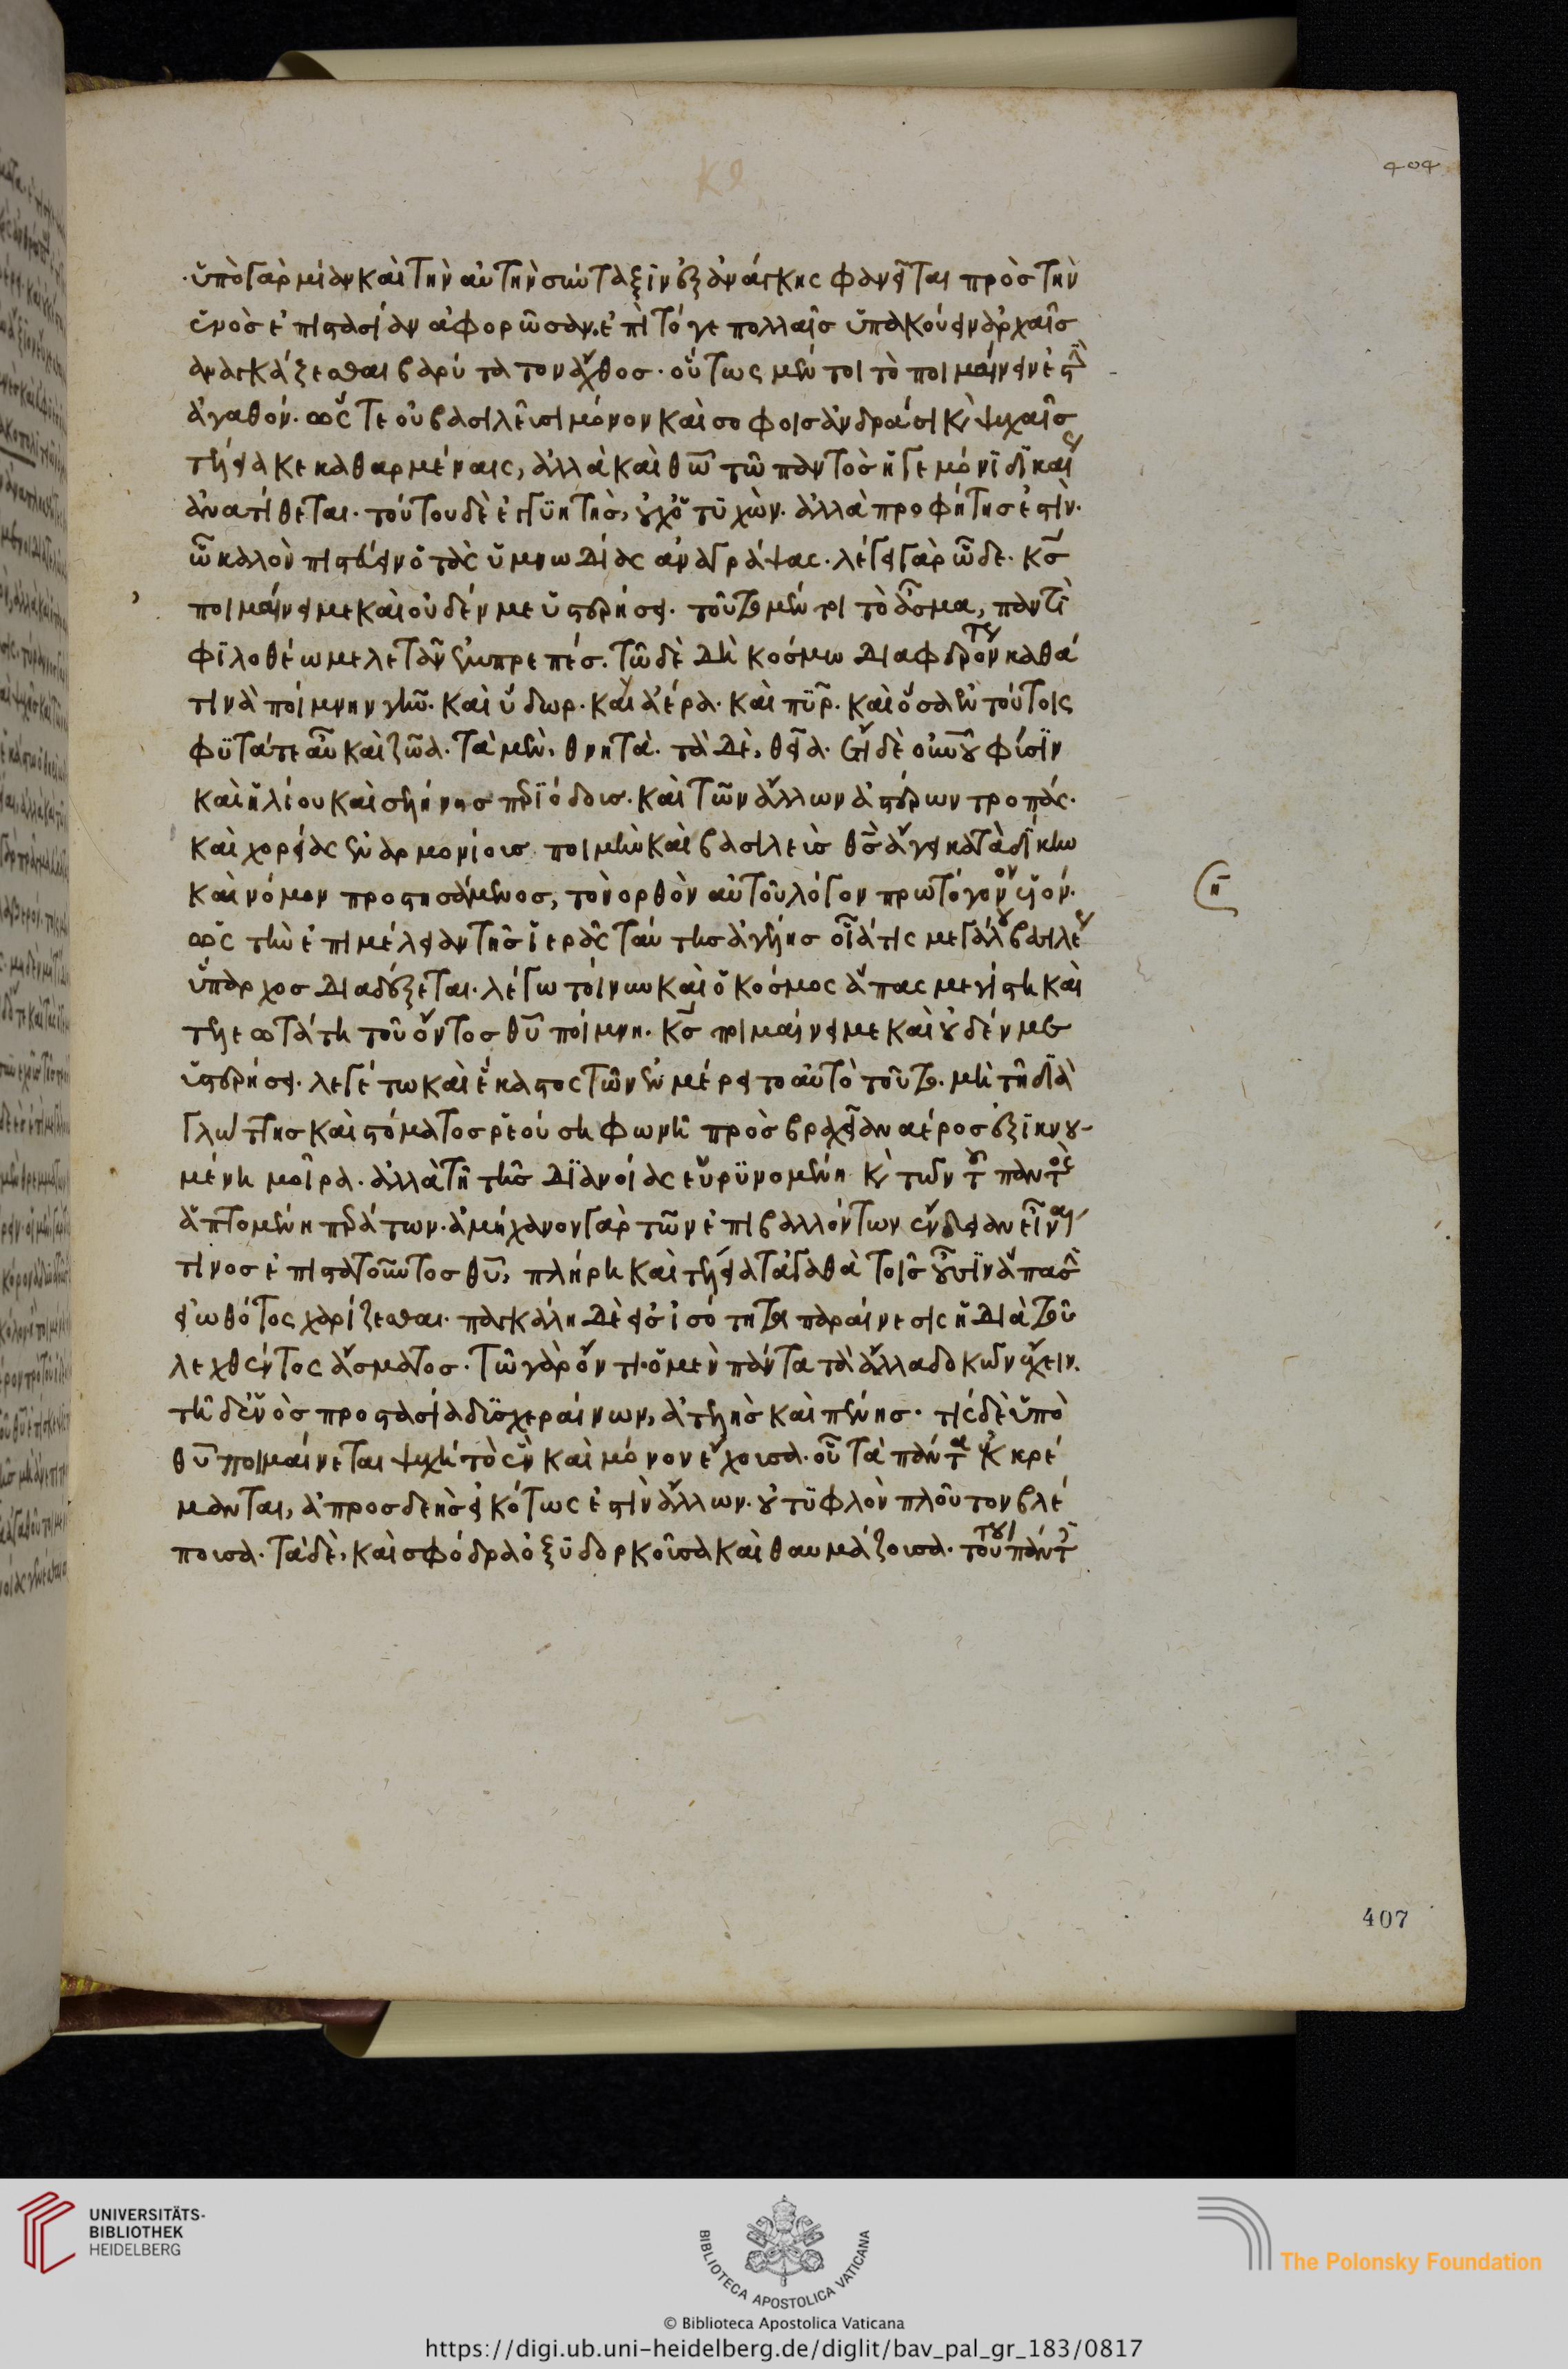 ὑπὸ γὰρ μίαν καὶ τὴν αὐτὴν σύνταξιν ἐξ ἀνάγκης φανεῖται πρὸς τὴν
ἑνὸς ἐπιστασίαν ἀφορῶσαν. ἐπὶ τό γε πολλαῖς ὑπακούειν ἀρχαῖς
ἀναγκάζεσθαι βαρύτατον ἄχθος. οὕτως μέν τοι τὸ ποιμαίνειν ἐστὶν
ἀγαθόν. ὥς τε οὐ βασιλεῦσι μόνον καὶ σοφοῖς ἀνδράσι κ(αὶ) ψυχαῖς
τέλεια κεκαθαρμέναις, ἀλλὰ καὶ θῶ τῶ παντὸς ἡγεμόνι δικαίως
ἀνατίθεται. τούτου δὲ ἐγγυητὴς, οὐχ ὁ τυχὼν. ἀλλὰ προφήτης ἐστὶν.
ὧ καλὸν πιστεύειν ὁ τὰς ὑμνωδίας ἀναγράψας. λέγει γὰρ ὧδε. κς
ποιμαίνει με καὶ οὐδέν με ὑστερήσει. τοῦτο μέν τοι τὸ ἆσμα, παντὶ
φιλοθέω μελετᾶν ἐμπρεπές. τῶ δὲ δὴ κόσμω διαφερόντως καθά
τινὰ ποίμνην γῆν. καὶ ὕδωρ. καὶ ἀέρα. καὶ πῦρ. καὶ ὅσα ἐν τούτοις
φυτά τε αὖ καὶ ζῶα. τὰ μὲν, θνητὰ. τὰ δὲ, θεῖα. ἔτι δὲ οὐνοῦ φύσιν
καὶ ἡλίου καὶ σελήνης περιόδους. καὶ τῶν ἄλλων ἀστέρων τροπάς.
καὶ χορείας ἐναρμονίους ποιμὴν καὶ βασιλεὺς θς ἄγει κατὰ δίκην
καὶ νόμον προστησάμενος, τὸν ὀρθὸν αὐτοῦ λόγον πρωτόγονον υἱόν.
ὃς τὴν ἐπιμέλειαν τῆς ἱερᾶς ταύτης ἀγέλης οἷά τις μεγάλου βασιλέως
ὕπαρχος διαδέξεται. λέγω τοίνυν καὶ ὁ κόσμος ἅπας μεγίστη καὶ
τελεωτάτη τοῦ ὄντος θυ ποίμνη. κς ποιμαίνει με καὶ οὐδέν με
ὑστερήσει. λεγέτω καὶ ἕκαστος τῶν ἐν μέρει το αὐτὸ τοῦτο. μὴ τῆ διὰ
γλώττης καὶ στόματος ρεούση φωνῆ πρὸς βραχεῖαν αέρος ἐξικνου
μένη μοῖρα. ἀλλὰ τῆ τῆς διανοίας εὐρυνομένη κ(αὶ) τῶν τοῦ παντὸς
ἁπτομένη περάτων. ἀμήχανον γὰρ τῶν ἐπιβαλλόντων ἔνδειαν εἶναί
τινος ἐπιστατοῦντος θυ, πλήρη καὶ τέλεια τἀγαθὰ τοῖς οὖσιν ἅπασι
εἰωθότος χαρίζεσθαι. παγκάλη δὲ εἰς ἰσότητα παραίνεσις ἡ διὰ τοῦ
λεχθέντος ἄσματος. τῶ γὰρ ὄντι. ὁ μὲν πάντα τὰ ἄλλα δοκῶν ἔχειν.
τῆ δ' ἑνὸς προστασία δυσχεραίνων, ἀτελὴς καὶ πένης. τίς δὲ ὑπὸ
θυ ποιμαίνεται ψυχὴ τὸ ἓν καὶ μόνον ἔχουσα. οὗ τὰ πάντα ἐκκρέ
μανται, ἀπροσδεὴς εἰκότως ἐστὶν ἄλλων. οὐ τυφλὸν πλοῦτον βλέ
πουσα. τὰ δὲ, καὶ σφόδρα ὀξυδορκοῦσα καὶ θαυμάζουσα. τούτου πάντ
404
407
UNIVERSITÄTS-
BIBLIOTHEK
HEIDELBERG
BIBLIOTECA APOSTOLICA VATICANA
The Polonsky Foundation
© Biblioteca Apostolica Vaticana
https://digi.ub.uni-heidelberg.de/diglit/bav_pal_gr_183/0817